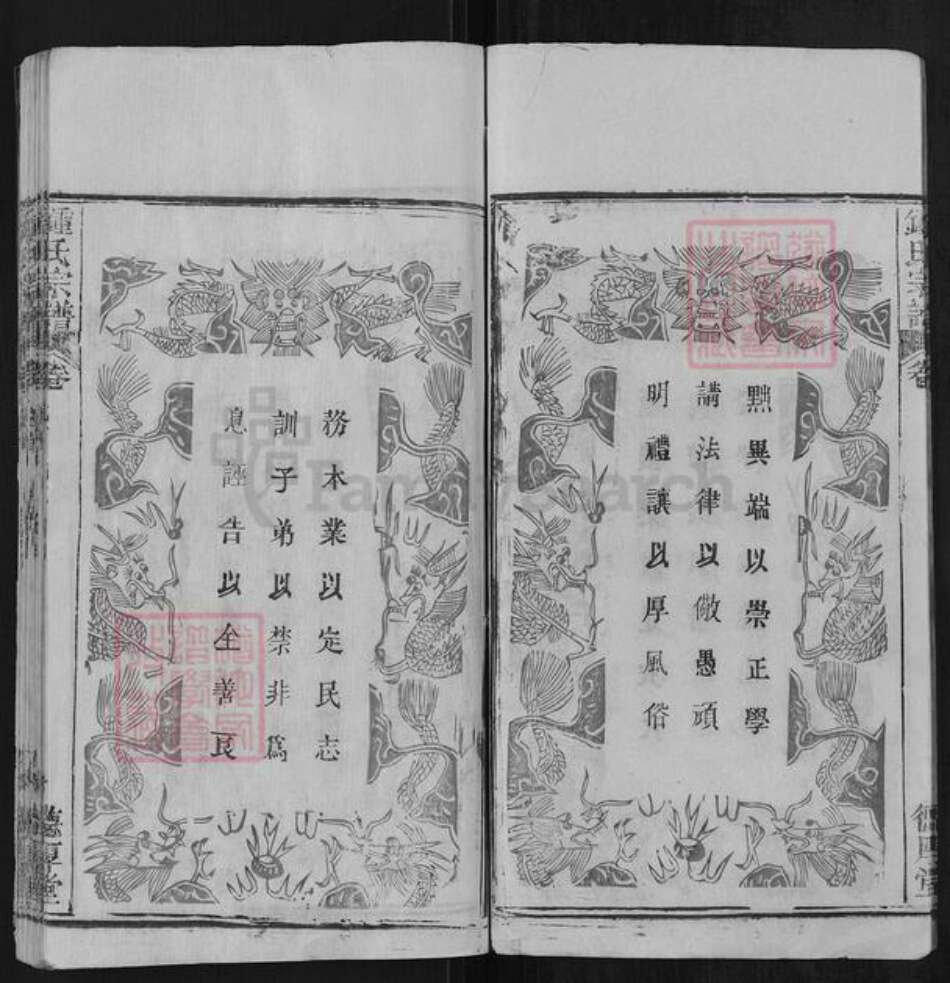 黜異端以崇正學
講法律以儆愚頑
明禮讓以厚風俗
務本業以定民志
訓子弟以禁非為
息誣告以全善良
鍾氏宗譜
卷
德厚堂
FamilySearch